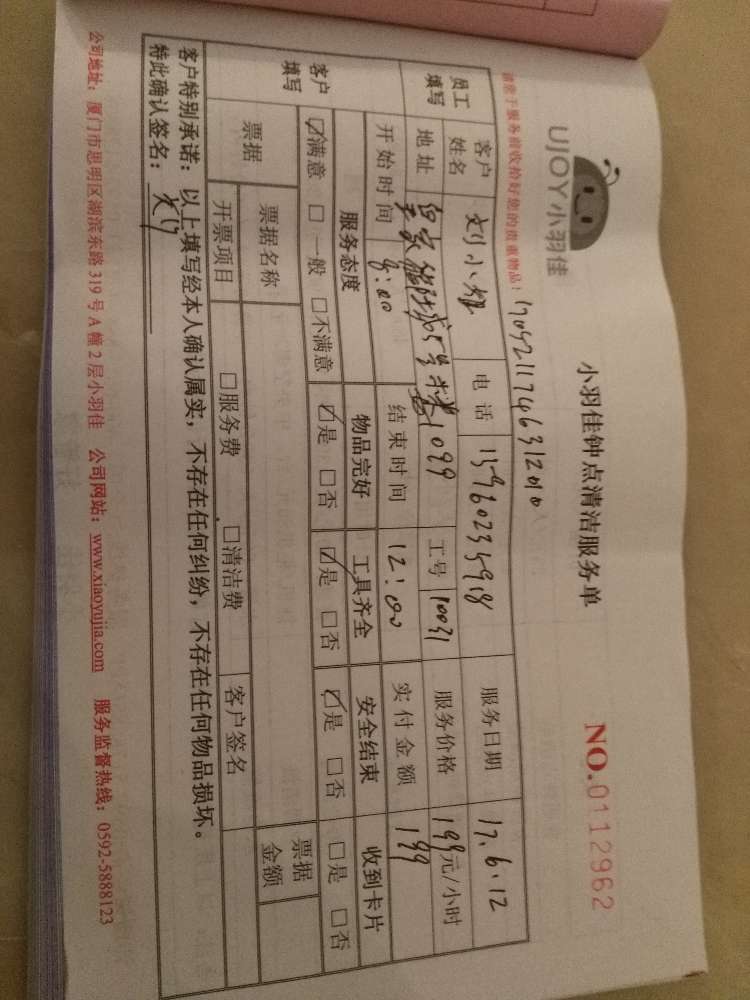 UJOY小羽佳
小羽佳钟点清洁服务单
NO.0112962
请您于服务前收拾好您的贵重物品!
员工填写
客户姓名 刘小姐 电话 15960235918 服务日期 17.6.12
地址 1099 工号 10031 服务价格 199元/小时
开始时间 8:00 结束时间 12:00 实付金额 199
客户填写
服务态度 物品完好 工具齐全 安全结束 收到卡片
☑满意 □一般 □不满意 ☑是 □否 ☑是 □否 ☑是 □否 □是 □否
票据 票据名称 票据金额
开票项目 □服务费 □清洁费 客户签名
客户特别承诺:以上填写经本人确认属实,不存在任何纠纷,不存在任何物品损坏。
特此确认签名:
公司地址:厦门市思明区湖滨东路319号A幢2层小羽佳 公司网站:www.xiaoyujia.com 服务监督热线:0592-5888123